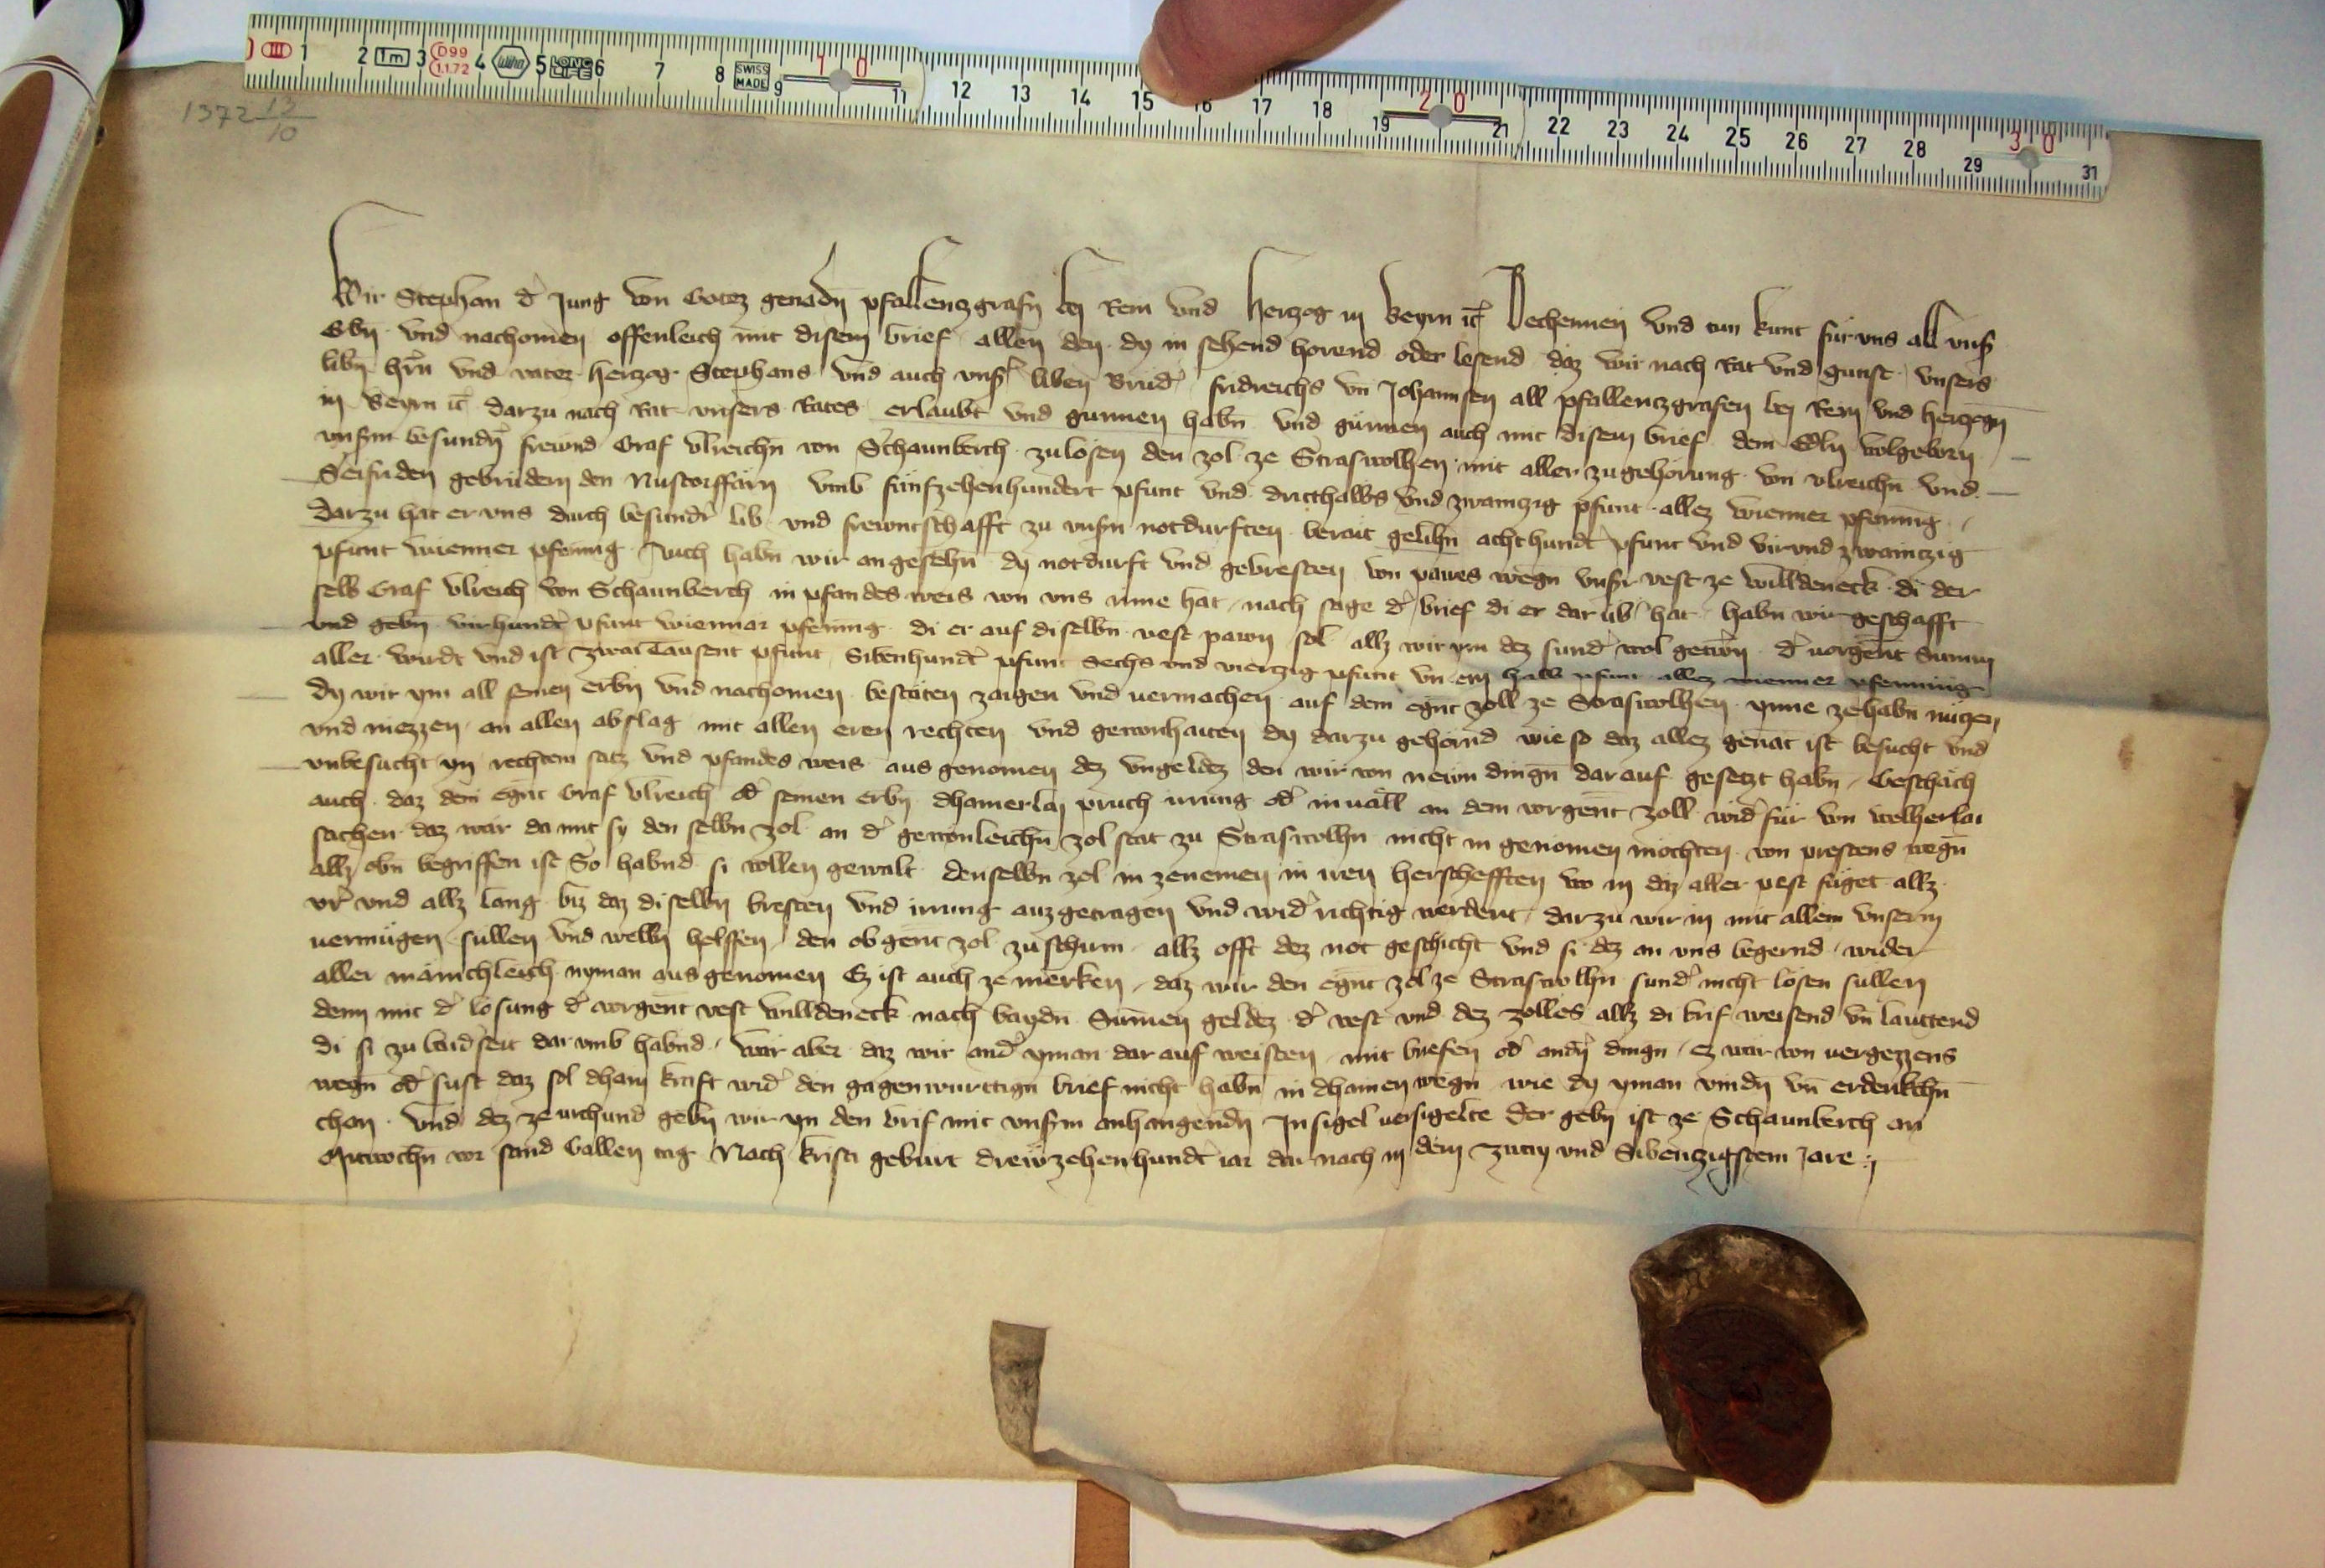 1 2 1m 3 D99 1.1.72 4 Wiha 5 LONG LIFE 6 7 8 SWISS MADE 9 10 11 12 13 14 15 16 17 18 19 20 21 22 23 24 25 26 27 28 29 30 31
1372 13/10
Wir Stephan d' Jung von Gotez genadn pfallentzgrafn bej Rein und Hertzog in Beyrn ic Bechennen und tun kunt für uns all unser
Erbn und nachomen offenleich mit disem brief allen den dy in sehend horend oder lesend daz wir nach Rat und gunst unsers
libn hrn und vater hertzog Stephans und auch unsr liben Brud' fridreichs un Johannsen all pfallentzgrafen bej Rein und hertzogn
in Beyrn ic darzu nach Rat unsers Rates erlaubt und gunnen habn und günnen auch mit disem brief dem Edln wolgeborn
unserm besundn frewnd Graf Ulreichn von Schaunberch zulosen den zol ze Straswolhen mit aller zugehorung von Ulreichn und
Seifriden gebrüdern den Nustorffarn umb fünfzehenhundert pfunt und dritthalbs und zwaintzig pfunt allez wienner pfenning
Darzu hat er uns durch besundr lib und frewntschafft zu unsern notdurften berait gelihn achthundt pfunt und virundzwaintzig
pfunt wienner pfennig Auch habn wir angesehn dy notdurft und gebresten von pawes wegn unsr vest ze Willdeneck di der
selb Graf Ulreich von Schaunberch in pfandes weis von uns inne hat nach sage d' brief di er dar üb' hat habn wir geschafft
und gebn virhundt pfunt wiennar pfening di er auf diselbn vest pawn sol allz wir ym dez sund' wol getrwn d' vorgent Summ
aller wirdt und ist zwai Tausent pfunt Sibenhundt pfunt Sechs und viertzig pfunt un ein halb pfunt allez wienner pfenning
Dy wir ym all seinen erbn und nachomen bestäten zaigen und vermachen auf dem egnt zoll ze Straswolhen ynne zehabn nützen
und niezzen an allen abslag mit allen eren rechten und gewonhaiten dy darzu gehornd wie so daz allez genat ist besucht und
unbesucht yn rechtem satz und pfandes weis aus genomen dez ungeldez den wir von newn dingn darauf gesetzt habn Geschach
auch daz dem egnt Graf Ulreich od' seinen erbn dhainerlaj pruch irrung od' inuall an dem vorgent zoll wid'für von welherlai
sachen daz wär da mit sy den selbn zol an d' gewonleichn zol stat zu Straswolhn nicht in genomen mochten von prestens wegn
allz obn begriffen ist So habnd si vollen gewalt denselbn zol in zenemen in iren herschefften wo in daz aller pest füget allz
vr und allz lang biz daz diselbn bresten und irrung auzgetragen und wid' richtig werdent darzu wir in mit allem unserm
vermügen süllen und welln helffen den obgent zol zuschirm allz offt dez not geschicht und si dez an uns begernd wider
aller mänichleich nyman aus genomen Ez ist auch ze merken daz wir den egnt zol ze Straswolhn sund' nicht losen süllen
denn mit d' losung d' vorgent vest Willdeneck nach baydn Summen geldez d' vest und dez zolles allz di brif weisend un lauttend
di si zu baid'seit dar umb habnd Wär aber daz wir and' yman dar auf weisten mit briefen od' andn dingn ez wär von vergezzens
wegn od' sust daz sol dhain kraft wid' den gagenwurttign brief nicht habn in dhainen wegn wie dy yman vindn un erdenkchn
chan Und dez ze urchund gebn wir yn den brif mit unserm anhangendn Insigel versigelte Der gebn ist ze Schaunberch an
Mitwochn vor sand Gallen tag Nach kristi geburt drewzehenhundt iar dar nach in dem zway und Sibentzigstem Jare